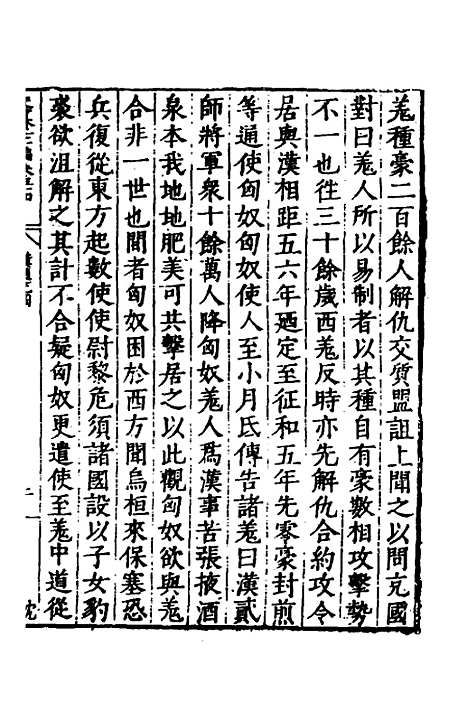 羗種豪二百餘人解仇交質盟詛上聞之以問充國
對曰羗人所以易制者以其種自有豪數相攻擊勢
不一也往三十餘歲西羗反時亦先解仇合約攻令
居與漢相距五六年廼定至征和五年先零豪封煎
等通使匈奴匈奴使人至小月氏傳告諸羗曰漢貳
師將軍衆十餘萬人降匈奴羗人爲漢事苦張掖酒
泉本我地地肥美可共擊居之以此觀匈奴欲與羗
合非一世也間者匈奴困於西方聞烏桓來保塞恐
兵復從東方起數使使尉黎危須諸國設以子女豹
裘欲沮解之其計不合疑匈奴更遣使至羗中道從